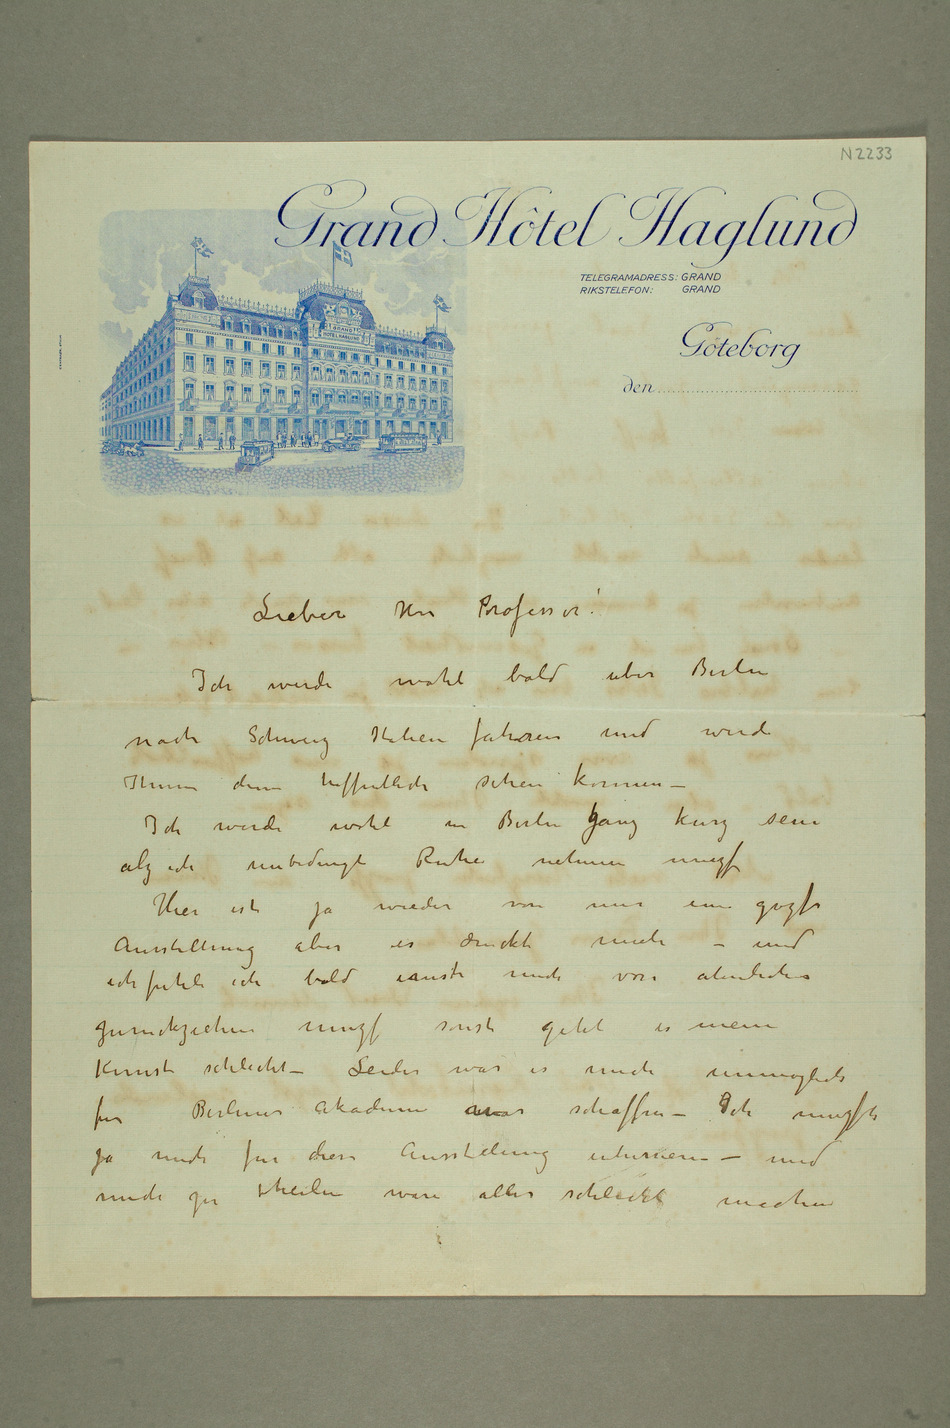 N 2233
Grand Hôtel Haglund
TELEGRAMADRESS: GRAND
RIKSTELEFON: GRAND
GRAND
HOTEL HAGLUND
Göteborg
den
Lieber Herr Professor!
Ich werde wohl bald über Berlin
nach Schweiz Italien fahren und werde
Ihnen dann hoffentlich sehen können –
Ich werde wohl in Berlin ganz kurz sein
als ich unbedingt Ruhe nehmen muss
Hier ist ja wieder von mir eine
Ausstellung aber es drückt mich – und
ich fühle ich bald mich von ähnlichen
zurückziehen sonst geht es meine
Kunst schlecht – Leider war es mich unmöglich
für Berliner Akademie was schaffen – Ich
ja mich für diese Ausstelung – und
mich zu theilen wäre alles schlecht machen